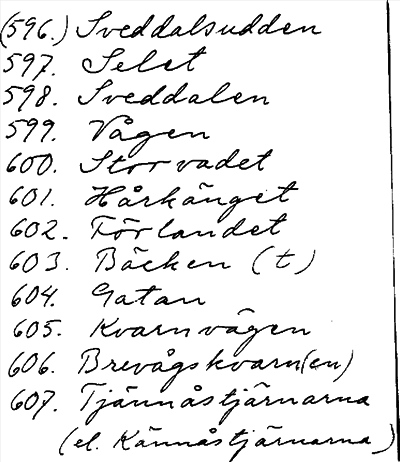 (596.) Sveddalsudden
597. Selet
598. Sveddalen
599. Vågen
600. Storvadet
601. Hårkänget
602. Förlandet
603. Bäcken (t)
604. Gatan
605. Kvarnvägen
606. Brevågskvarn(en)
607. Tjännåstjärnarna
(el. Kännåstjärnarna)